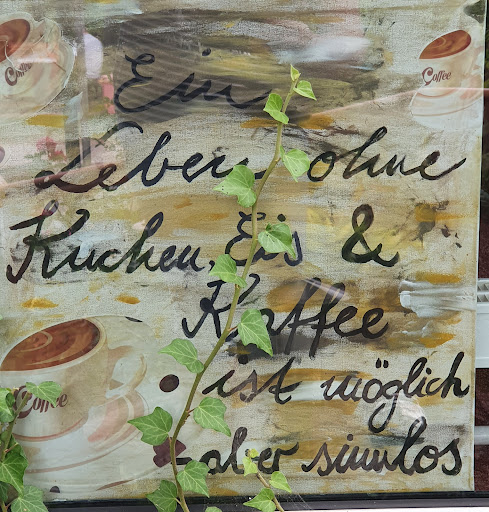 Coffee
Coffee
Ein
Leben ohne
Kuchen, Eis &
Kaffee
Coffee
ist möglich
aber sinnlos